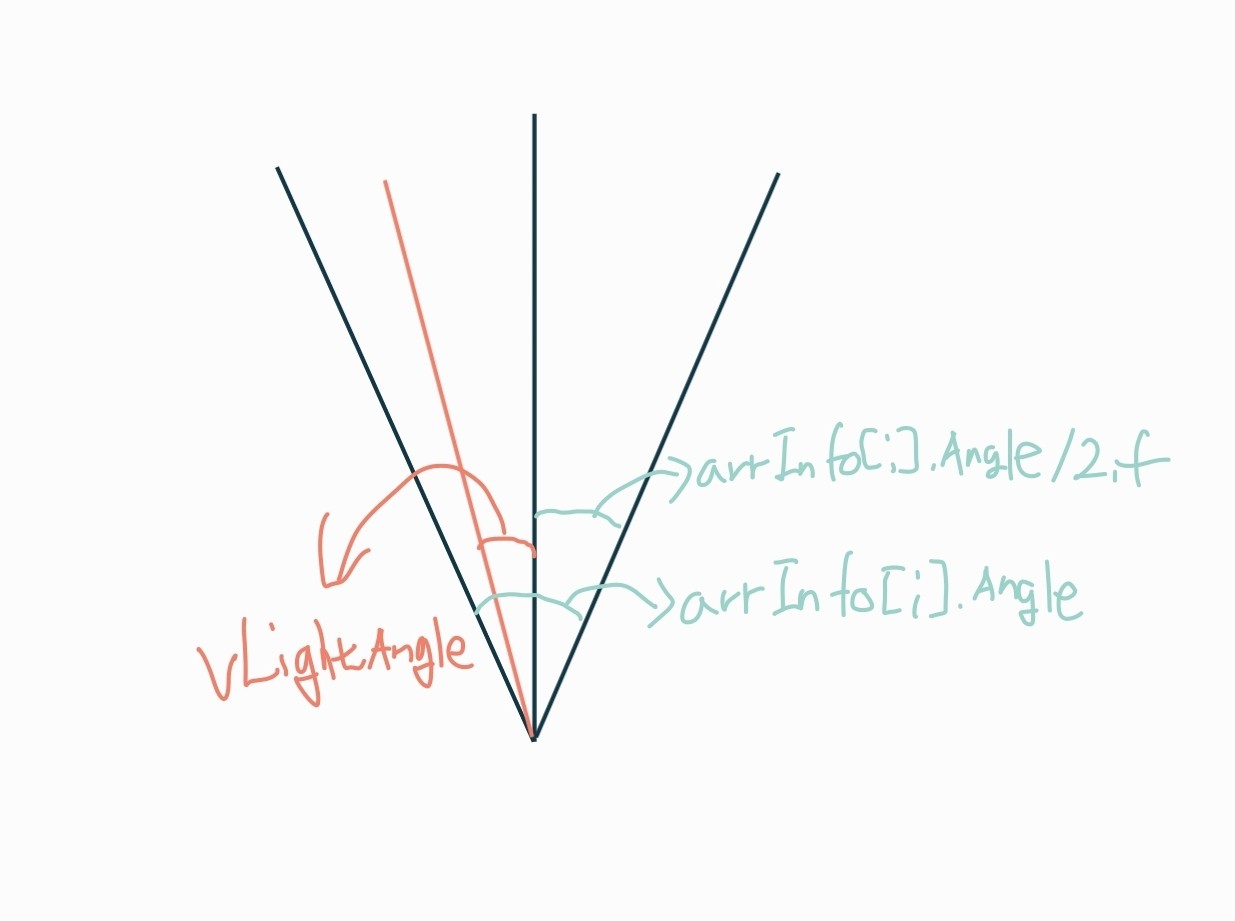 arrInfo[i].Angle/2.f
arrInfo[i].Angle
vLightAngle